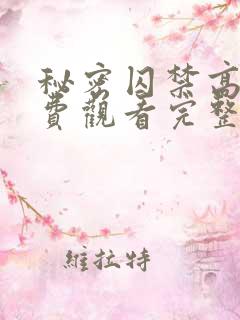 秘密囚禁高
费觀看完整
維拉特